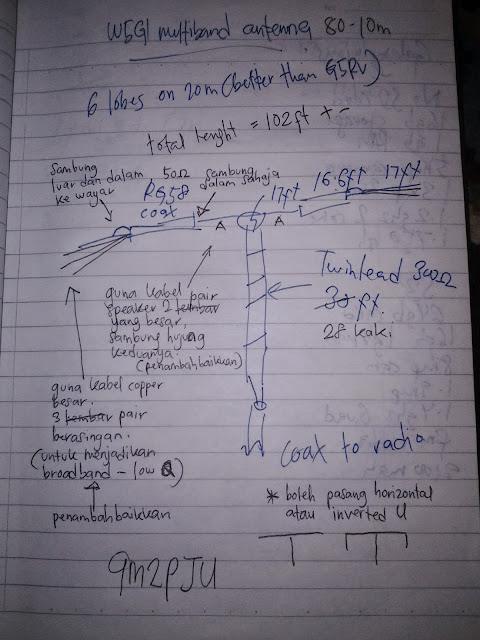 W5GI multiband antenna 80-10m
6 lobes on 20m (better than G5RV)
total lenght = 102ft + -
Sambung
luar dan dalam
ke wayar
50Ω
RG58
coax
Sambung
dalam sahaja
17ft
16.6ft
17ft
A
A
guna kabel pair
speaker 2 lembar
yang besar,
sambung hujung
keduanya.
(penambahbaikkan)
Twinlead 300Ω
30 ft.
28 kaki
guna kabel copper
besar.
3 lembar pair
berasingan.
(untuk menjadikan
broadband - low Q)
penambahbaikkan
coax to radio
* boleh pasang horizontal
atau inverted U
9M2PJU